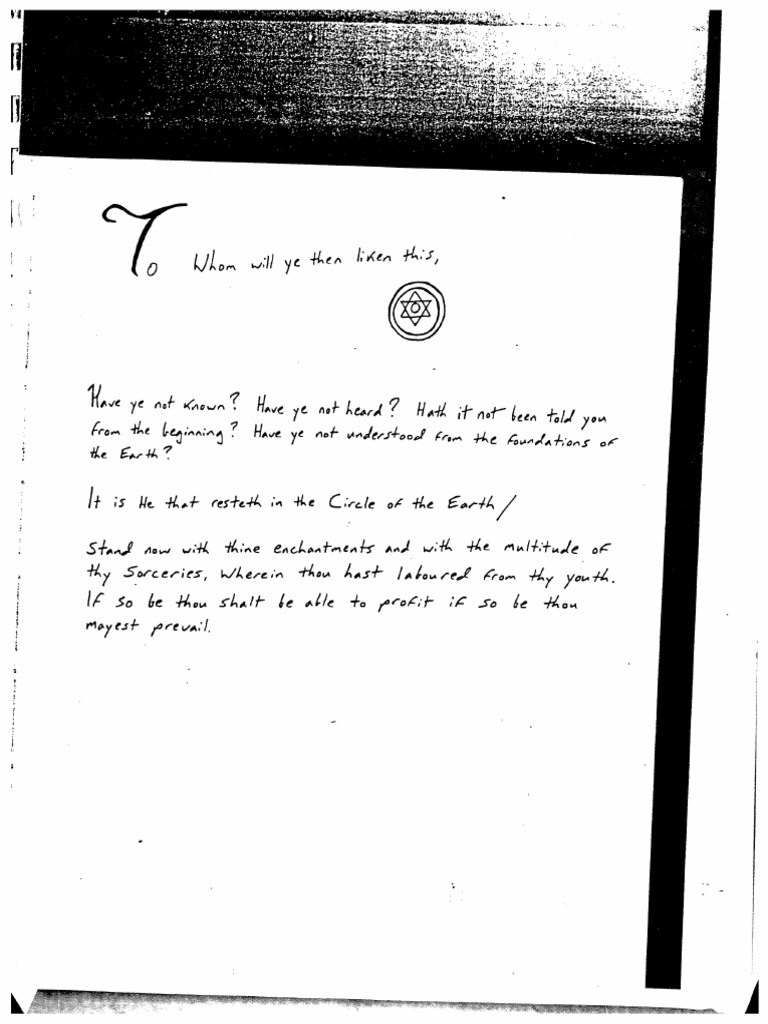 To Whom will ye then liken this,
Have ye not known? Have ye not heard? Hath it not been told you
from the beginning? Have ye not understood from the foundations of
the Earth?
It is He that resteth in the Circle of the Earth/
Stand now with thine enchantments and with the multitude of
thy Sorceries, Wherein thou hast laboured from thy youth.
If so be thou shalt be able to profit if so be thou
mayest prevail.